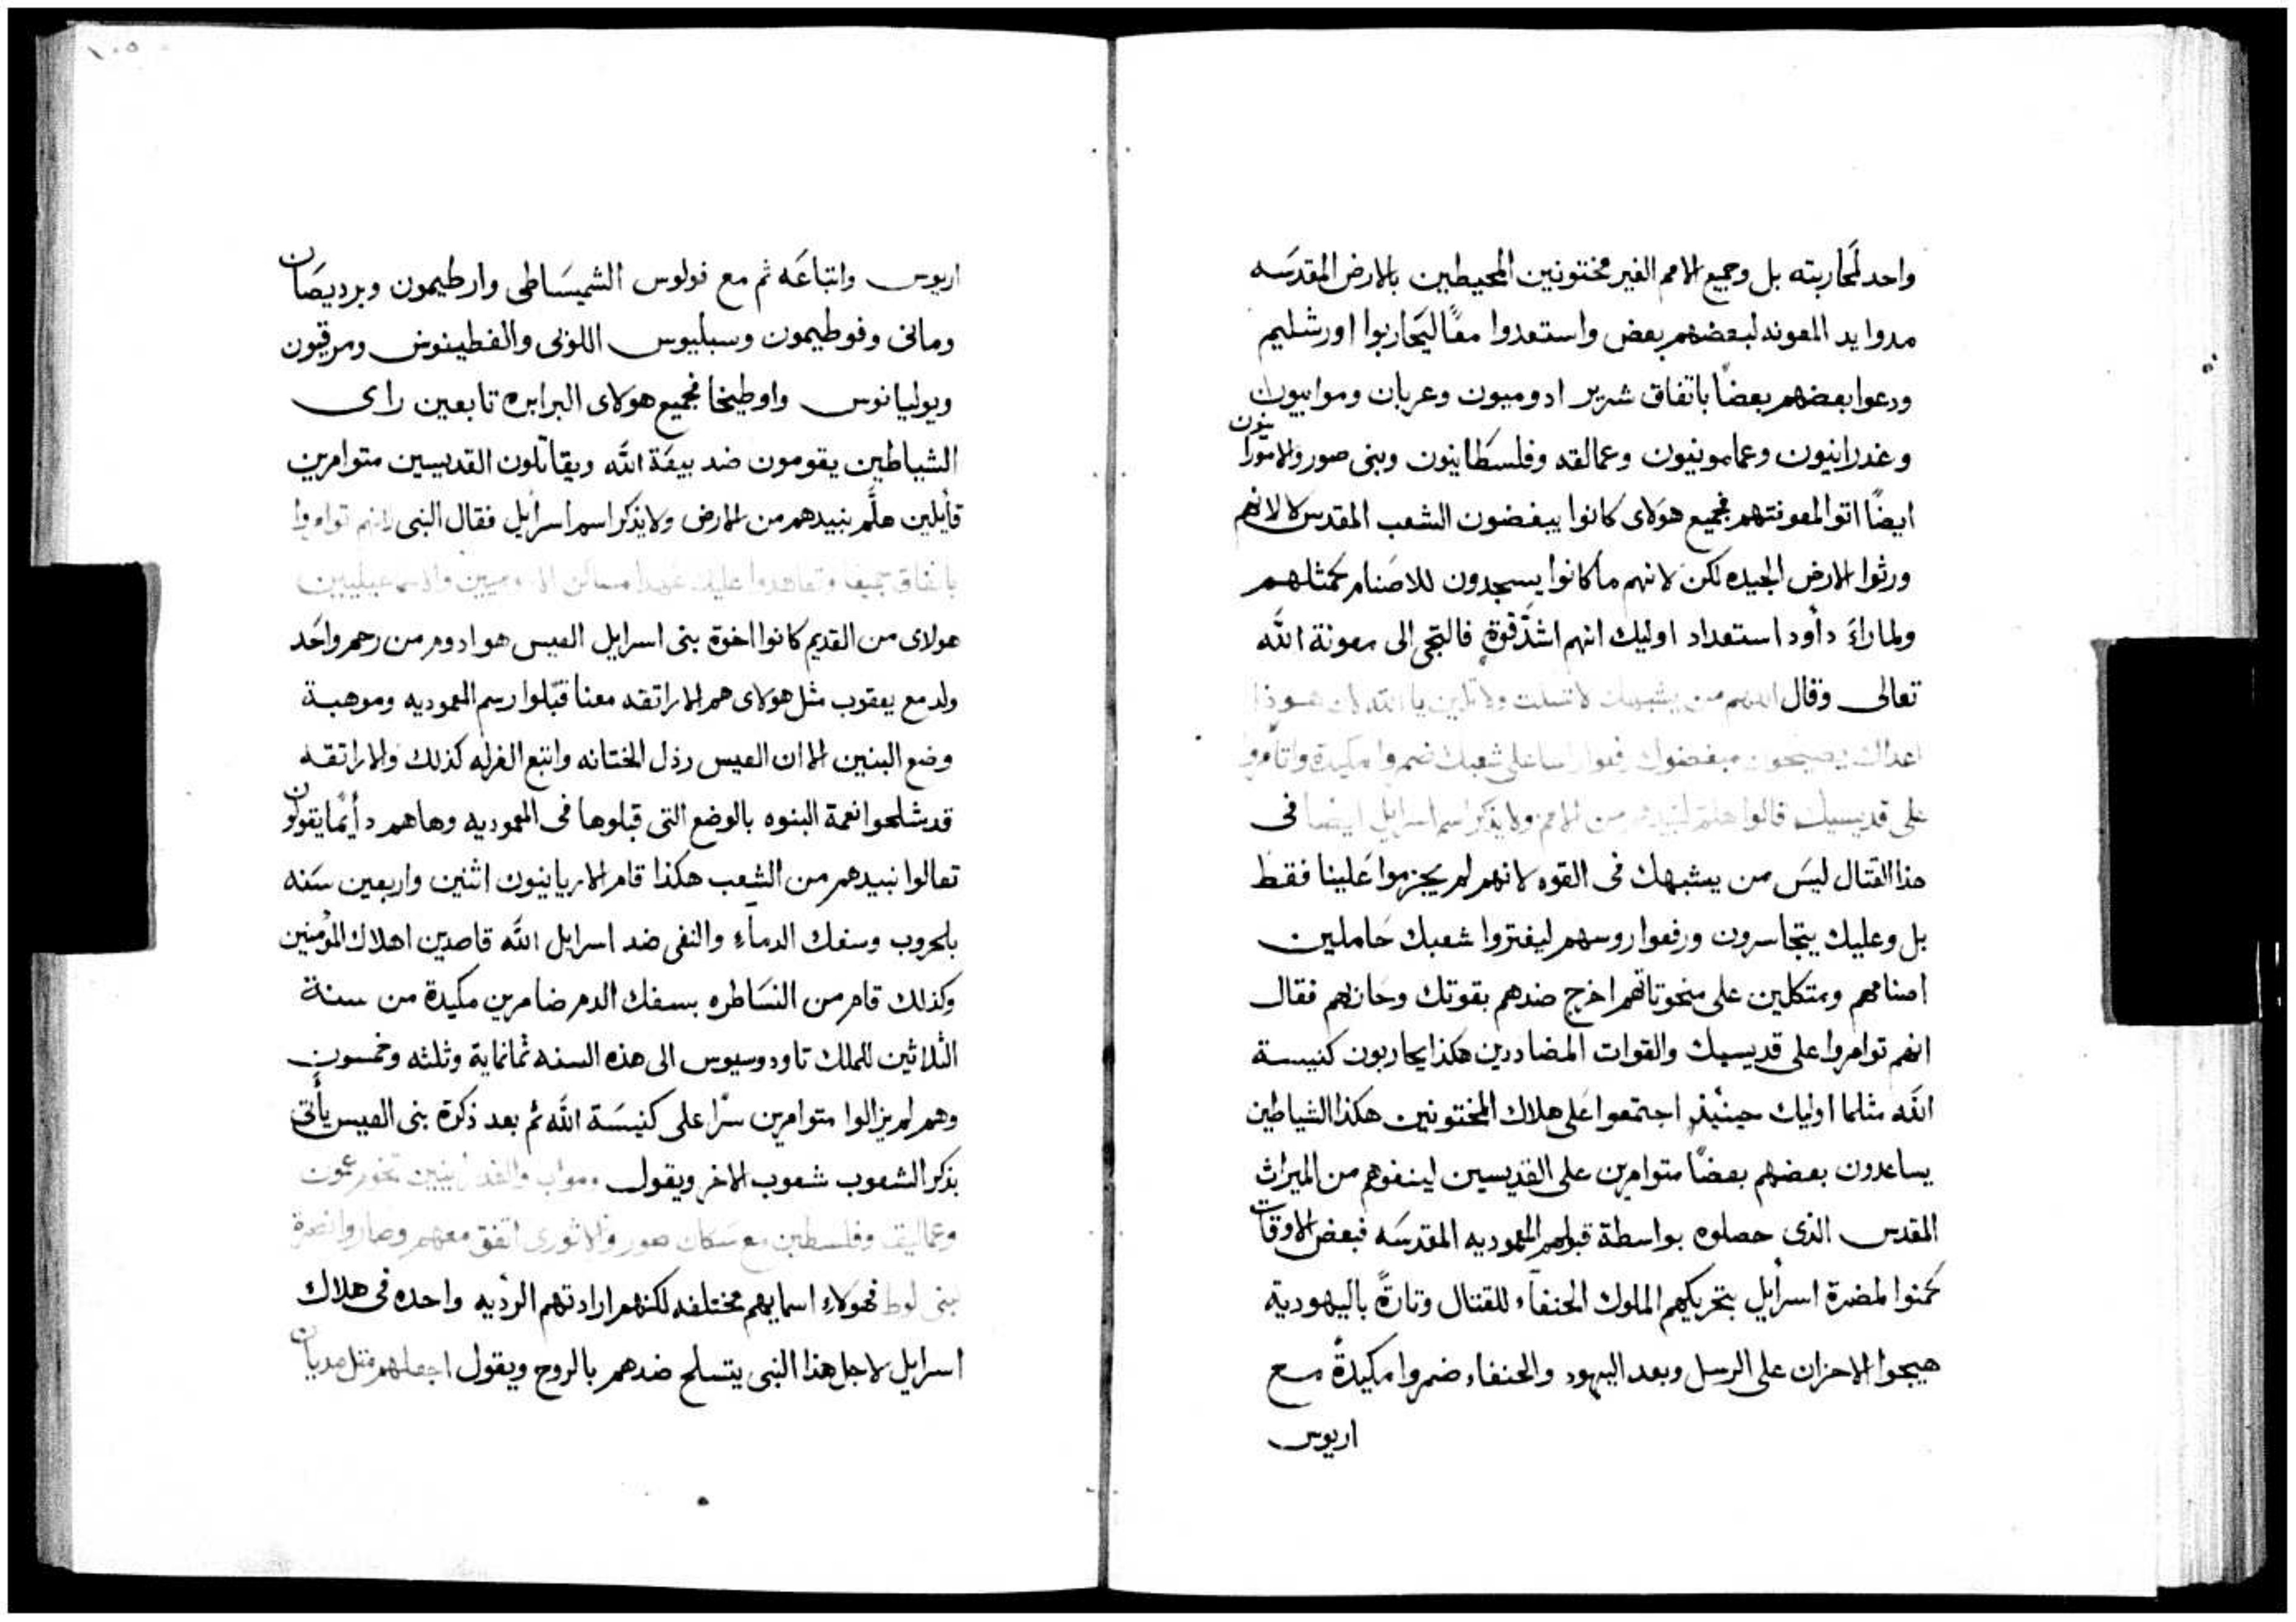 واحد لمحاربته بل وجميع الامم الغير مختونين المحيطين بالارض المقدسه
مدوا يد المعونه لبعضهم بعض واستعدوا معًا ليحاربوا اورشليم
ودعوا بعضهم بعضًا باتفاق شرير ادوميون وعربان وموابيون
وغدرانيون وعمامونيون وعمالقه وفلسطانيون وبنى صور والاثورانيون
ايضًا اتوا لمعونتهم فجميع هولاى كانوا يبغضون الشعب المقدس لا لانهم
ورثوا الارض الجيده لكن لانهم ما كانوا يسجدون للاصنام كمثلهم
ولما راءَ دأود استعداد اوليك انهم اشدّ قوةٍ فالتجى الى معونة الله
تعالى وقال اللهم من يشبهك لا تسكت ولا تلين يا الله لان هوذا
اعداك يصيحون مبغضوك رفعوا راسا على شعبك ضمروا مكيدة وتامروا
على قديسيك قالوا هلم لنبيدهم من الامم ولا يذكر اسم اسرايل ايضا فى
هذا القتال ليس من يشبهك فى القوه لانهم لم يجزموا علينا فقط
بل وعليك يتجاسرون ورفعوا روسهم ليفتروا شعبك حاملين
اصنامهم ومتكلين على منحوتاتهم اخرج ضدهم بقوتك وحازهم فقال
انهم توامروا على قديسيك والقوات المضاددين هكذا يحاربون كنيسة
الله مثلما اوليك حينئيذٍ اجتمعوا على هلاك المختونين هكذا الشياطين
يساعدون بعضهم بعضًا متوامرين على القديسين لينفوهم من الميراث
المقدس الذى حصلوه بواسطة قبولهم المعموديه المقدسه فبعض الاوقات
كمنوا لمضرة اسرأيل بتحريكهم الملوك الحنفاء للقتال وتارةً باليهودية
هيجوا الاحزان على الرسل وبعد اليهود والحنفاء ضمروا مكيدةً مع
اريوس
١٠٥
اريوس واتباعه ثم مع فولوس الشميساطى وارطيمون وبرديصان
ومانى وفوطيمون وسبليوس اللوبى والفطينوس ومرقيون
ويوليانوس واوطيخا فجميع هولاى البرابره تابعين راى
الشياطين يقومون ضد بيعة الله ويقاتلون القديسين متوامرين
قأيلين هلَّم نبيدهم من الارض ولا يذكر اسم اسرأيل فقال النبى انهم توامروا
باتفاق جميعا وتعاهدوا عليك عهدا مساكن الادوميين والاسماعيليين
هولاى من القديم كانوا اخوة بنى اسرايل العيس هو ادوم من رحم واحد
ولد مع يعقوب مثل هولاى هم الاراتقه معنا قبّلوا رسم المعموديه وموهبة
وضع البنين الا ان العيس رذل الختانه واتبع الغرله كذلك والاراتقه
قد شلحوا نعمة البنوه بالوضع التى قبلوها فى المعموديه وها هم دأيمًا يقولون
تعالوا نبيدهم من الشعب هكذا قام الاريانيون اثنين واربعين سنه
بالحروب وسفك الدماءِ والنفى ضد اسرايل الله قاصدين اهلاك المؤمنين
وكذلك قام من النساطره بسفك الدم ضامرين مكيدة من سنة
الثلاثين للملك تاودوسيوس الى هذه السنه ثمانماية وثلثه وخمسون
وهم لم يزالوا متوامرين سرًا على كنيسة الله ثم بعد ذكرة بنى العيس يأتى
بذكر الشعوب شعوب الاخر ويقول ومواب والغدرانيين تخوم عمون
وعماليق وفلسطين مع سكان صور والاثورى اتفق معهم وصاروا نصرة
لبنى لوط فهولاءِ اسمايهم مختلفه لكنهم ارادتهم الرديه واحده فى هلاك
اسرايل لاجل هذا النبى يتسلح ضدهم بالروح ويقول اجعلهم مثل مديان